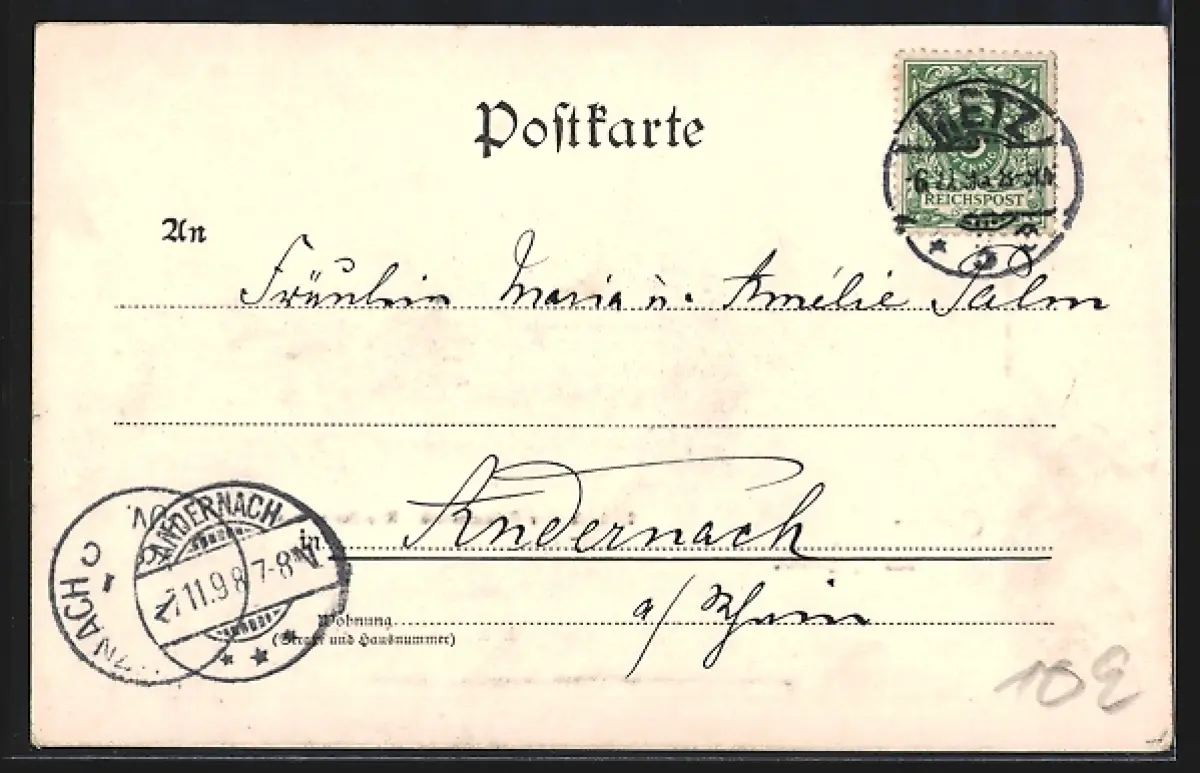 Postkarte
METZ
5
PFENNIG
REICHSPOST
An
Fräulein Maria u. Amélie Salm
in Andernach
a/Rhein
Wohnung
(Straße und Hausnummer)
ANDERNACH
7.11.98 7-8
NACH
10 €